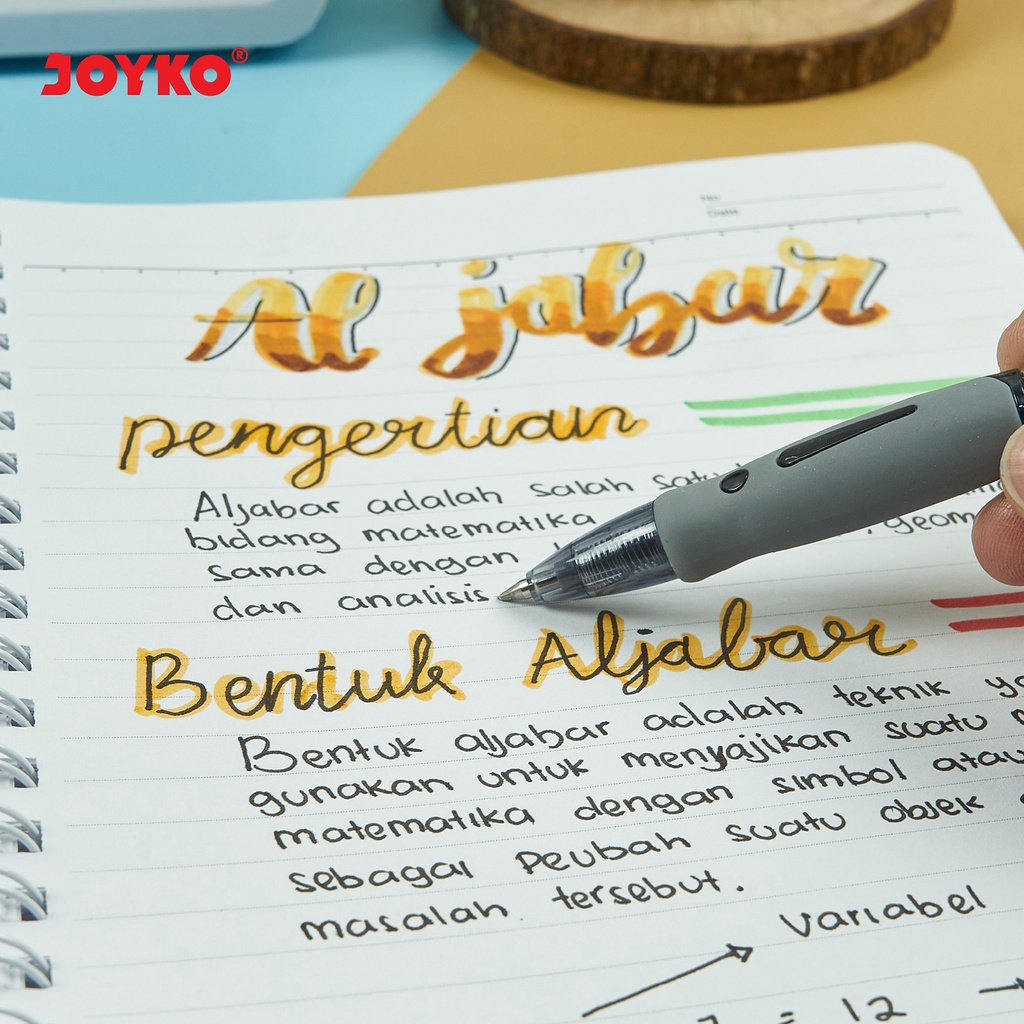 JOYKO®
No
Date
Al jabar
pengertian
Aljabar adalah salah satu
bidang matematika
sama dengan
dan analisis
Bentuk Aljabar
Bentuk aljabar adalah teknik
gunakan untuk menyajikan suatu
matematika dengan simbol atau
sebagai peubah suatu objek
masalah tersebut.
Variabel
= 12